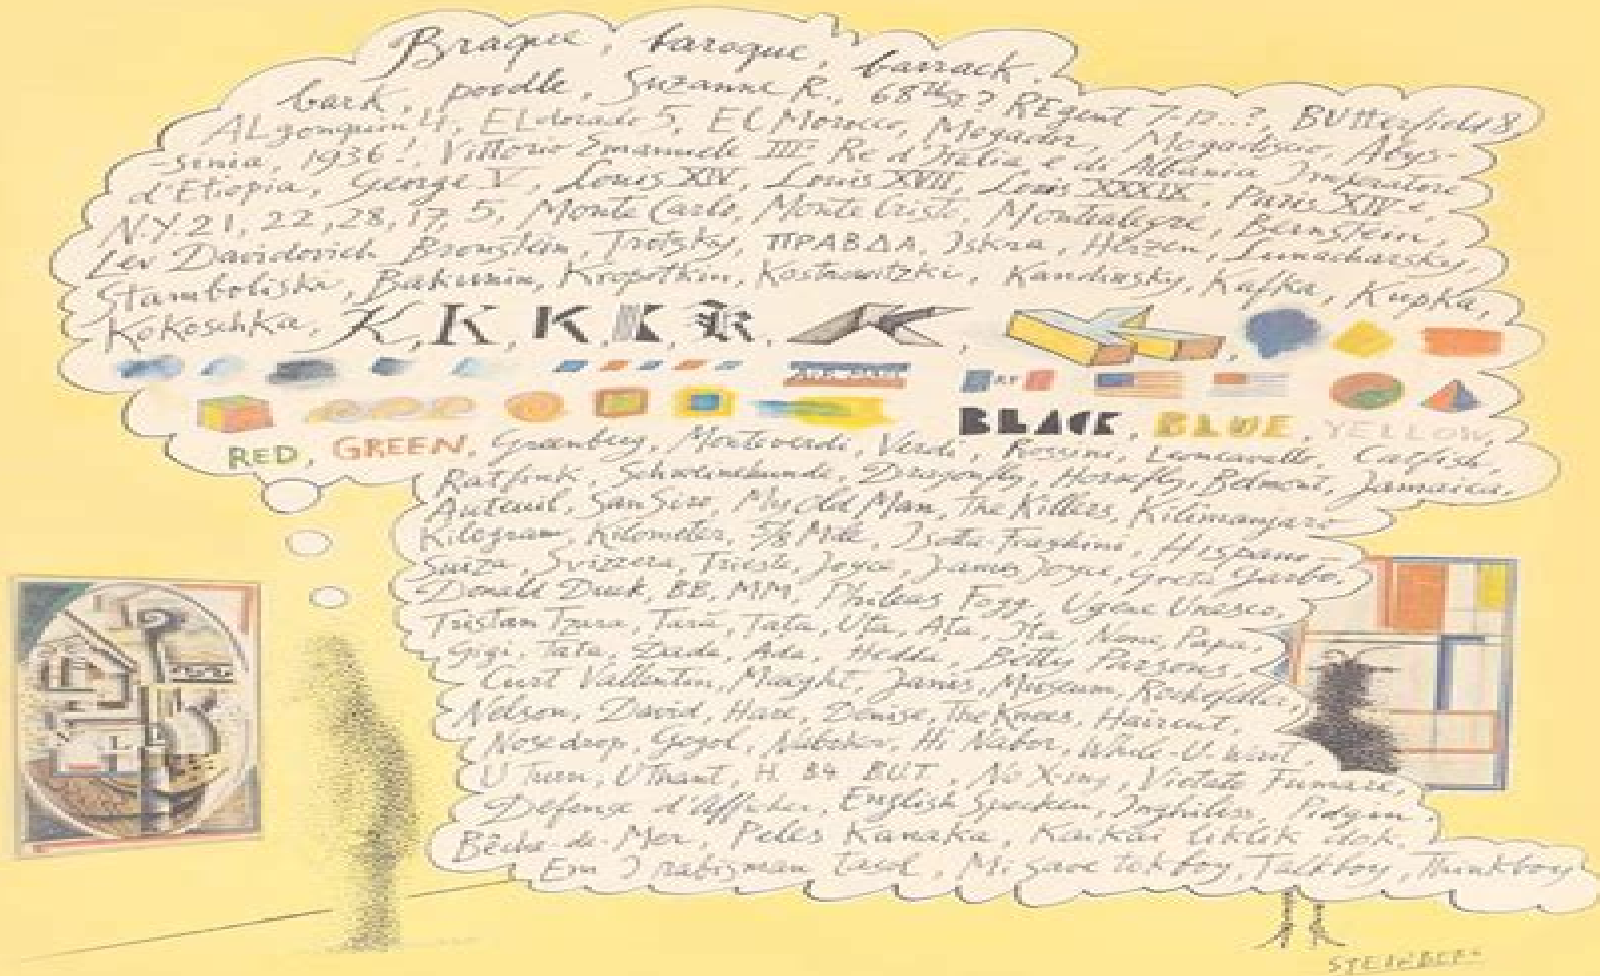 Braque, baroque, barrack,
bark, poodle, Suzanne R., 68th St? REgent 7-12..?, BUtterfield 8,
ALgonquin 4, ELdorado 5, El Morocco, Mogador, Mogadiscio, Abys-
-sinia, 1936!, Vittorio Emanuele III° Re d'Italia e di Albania Imperatore
d'Etiopia, George V, Louis XIV, Louis XVII, Louis XXXIX, Paris XIVe,
N.Y. 21, 22, 28, 17, 5, Monte Carlo, Monte Cristo, Montealegre, Bernstein,
Lev Davidovich Bronstein, Trotsky, ПРАВДА, Iskra, Herzen, Lunacharsky,
Stamboliski, Bakunin, Kropotkin, Kostrowitzki, Kandinsky, Kafka, Kupka,
Kokoschka, K, K, K, K, K, K, K,
AIR MAIL
BLACK, BLUE, YELLOW,
RED, GREEN, Greenberg, Monteverdi, Verdi, Rossini, Leoncavallo, Catfish,
Ratfink, Schweinehunde, Dragonfly, Horsefly, Belmont, Jamaica,
Auteuil, San Siro, My Old Man, The Killers, Kilimanjaro
Kilogram, Kilometer, 5/8 Mile, Isotta-Fraschini, Hispano-
Suiza, Svizzera, Trieste, Joyce, James Joyce, Greta Garbo,
Donald Duck, BB, MM, Phileas Fogg, Ugene Unesco,
Tristan Tzara, Tara, Tata, Uta, Ata, Ita, Nona, Papa,
Gigi, Tata, Dada, Ada, Hedda, Betty Parsons,
Curt Valentin, Maeght, Janis, Museum, Rockefeller,
Nelson, David, Hare, Denise, The Knees, Haircut,
Nosedrop, Gogol, Nabokov, Hi Nabor, While-U-Wait,
U Turn, U Thant, H. B4 BUT, No X-ing, Vietato Fumare,
Défense d'Afficher, English Spoken, Inghiliss, Pidgin,
Bêche-de-Mer, Peles Kanaka, Kaikai liklik dok,
Em I rabisman tasol, Mi save tok boy, Talkboy, Thinkboy
STEINBERG